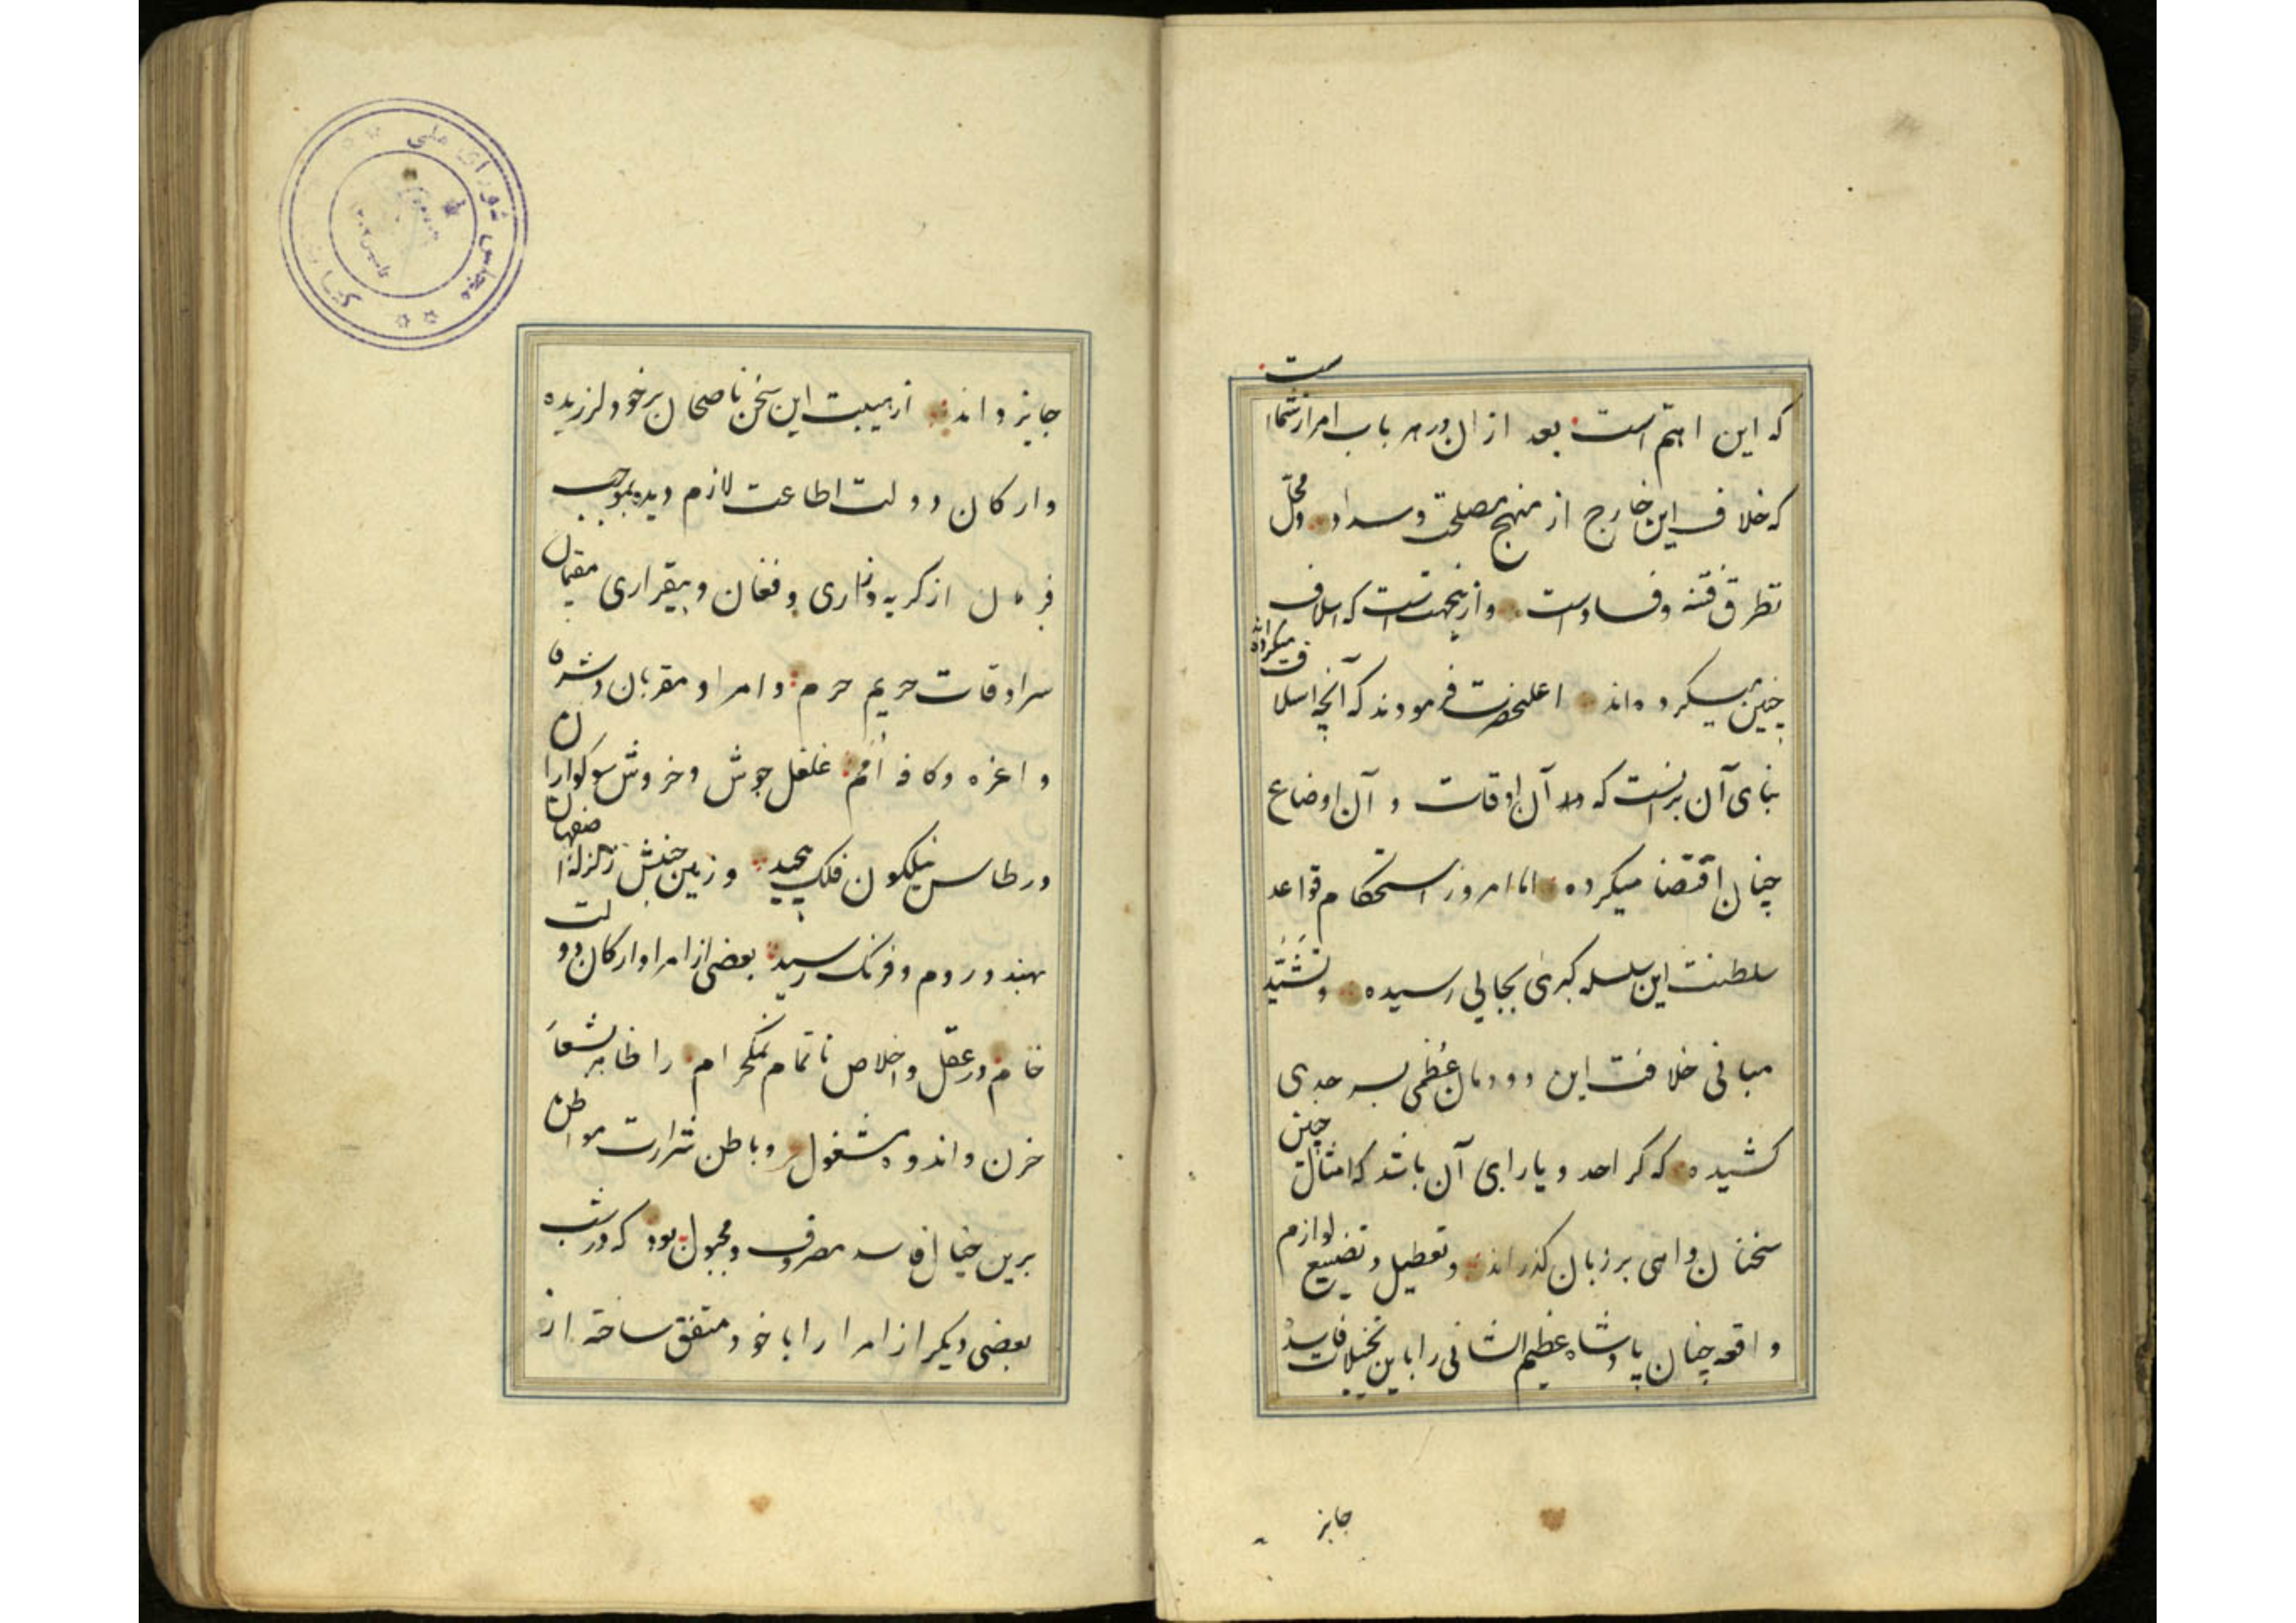 که این اهتم است بعد از ان در هر باب امر از شماست
که خلاف این خارج از منهج مصلحت و سداد و محلّ
تطرق فتنه و فساد است و ازینجهتست که اسلاف
چنین میکرده‌اند اعلیحضرت فرمودند که آنچه اسلاف میکرده‌اند
بنای آن برانست که در آن اوقات و آن اوضاع
چنان اقتضا میکرده اما امروز استحکام قواعد
سلطنت این سلسله کبری بجایی رسیده و تشیّد
مبانی خلافت این دودمان عظمی بسرحدی
کشیده که کرا حد و یارای آن باشد که امثال چنین
سخنان واهی بر زبان کذراند و تعطیل و تضییع لوازم
واقعه چنان پادشاه عظیم الشانی را باین تخیلات فاسده
جایز
جایز داند از هیبت این سخن ناصحان بر خود لرزیده
و ارکان دولت اطاعت لازم دیده بموجب
فرمان از کریه و زاری و فغان و بیقراری مقیمان
سرادقات حریم حرم و امرا و مقربان و شرفا
و اعزه و کافه اُمَم غلغل جوش و خروش سوکواران
در طاس نیلکون فلک پیچید و زمین جنبش زلزله اصفهان
بهند و روم و فرنک رسید بعضی از امرا و ارکان دولت
خام در عقل و اخلاص ناتمام نمکحرام را ظاهر بشعار
حزن و اندوه مشغول و باطن شرارت مواطن
برین خیال فاسد مصروف و مجبول بود که در شب
بعضی دیکر از امرا را با خود متفق ساخته از
کتابخانه مجلس شورای ملی